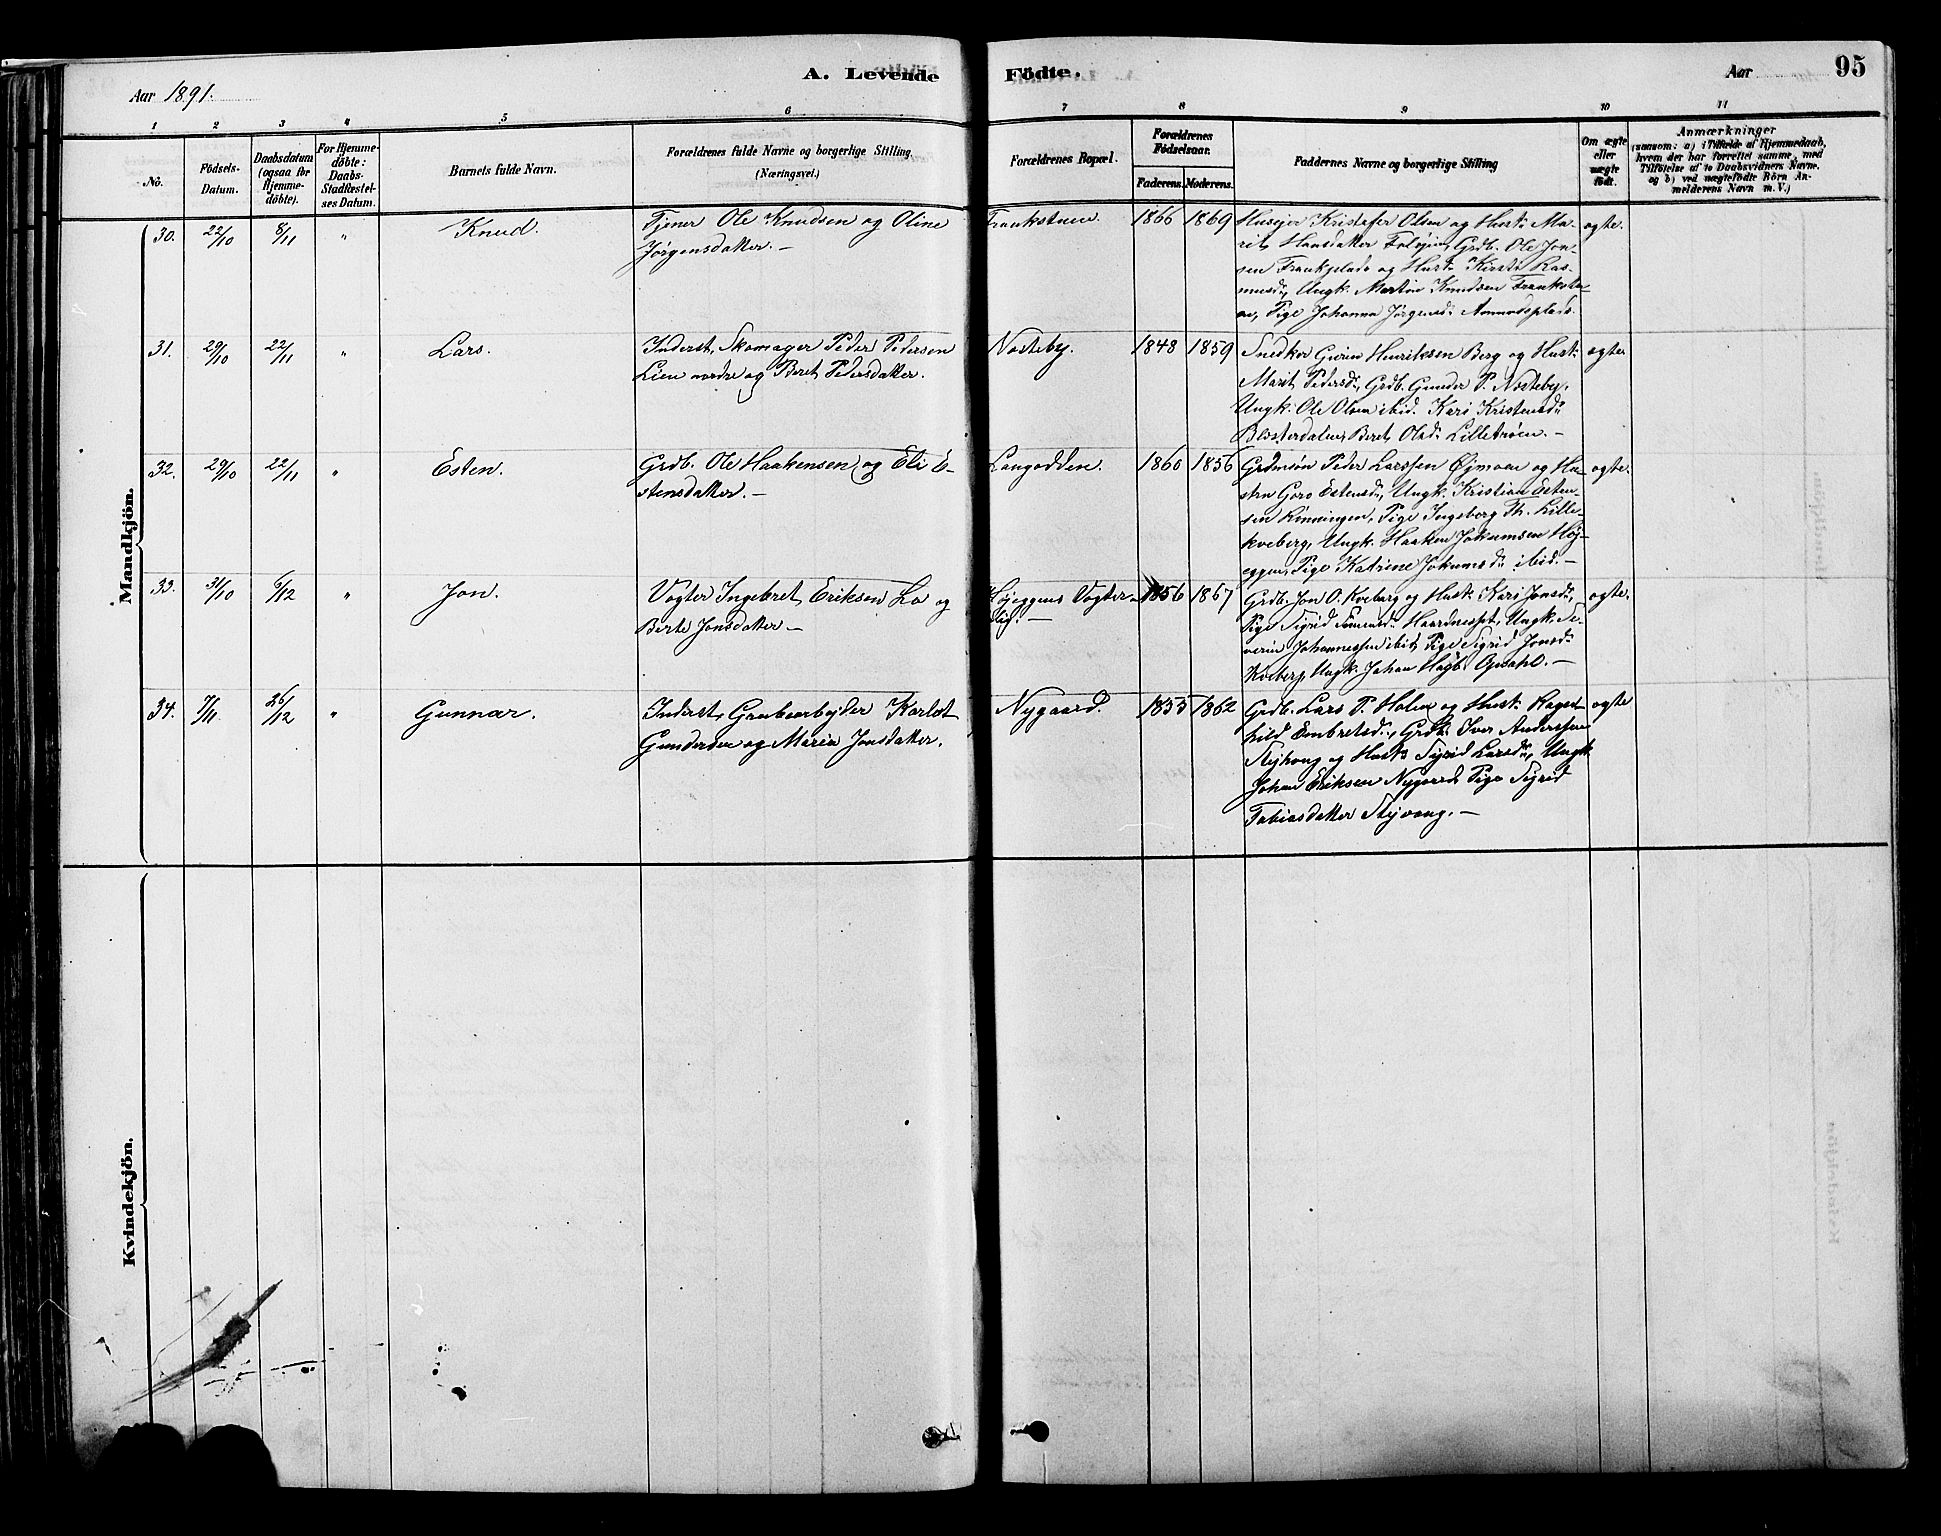 A. Levende Födte.
Aar 1891.
Aar 95
1 2 3 4 5 6 7 8 9 10 11
No.
Födsels-
Datum.
Daabsdatum
(ogsaa for
Hjemme-
döbte).
For Hjemme-
döbte:
Daabs-
Stadfæstel-
ses Datum.
Barnets fulde Navn.
Forældrenes fulde Navne og borgerlige Stilling
(Næringsvei.)
Forældrenes Bopæl.
Forældrenes
Födselsaar.
Faderens. Moderens.
Faddernes Navne og borgerlige Stilling
Om ægte
eller
uægte
födt.
Anmærkninger
(saasom: a) i Tilfælde af Hjemmedaab,
hvem der har forrettet samme, med
Tilföielse af to Daabsvidners Navne.
og b) ved uægtefödte Börn An-
melderens Navn m. V.)
Mandkjön.
30. 22/10 8/11 " Knud.
Tjener Ole Knudsen og Oline
Jørgensdatter. —
Frankstuen. 1866 1869
Husejer Kristofer Olsen og Hust: Ma-
rit Hansdatter Grdb. Ole Jon-
sen og Hust: Kirsti Ras-
musd:, Ungk. Martin Knudsen Frankstu-
en, Pige Johanna Jørgensd: Amundsplads.
ægte.
31. 29/10 22/11 " Lars.
Inderst, Skomager Peder Pedersen
Lien nordre og Beret Pedersdatter.
Nosteby. 1848 1859
Snedker Henriksen Berg og Hust:
Marit Pedersd:, Grdb. Gunder P. Nosteby.
Ungk. Ole Olsen ibid. Kari Kristensd:
Beret Olsd: Lillestrøm. —
ægte
32. 29/10 22/11 " Esten.
Grdb. Ole Haakensen og Eli E-
stensdatter. —
Langodden. 1860 1856
Grdmsøn Peder Larssen Øjmoen og Hu-
stru Goro Estensd:, Ungk. Kristian Esten-
sen Rønningen, Pige Ingeborg Th. Lille-
kveberg, Ungk. Haaken Jokumsen Høj-
eggen, Pige Katrine Jokumsd: ibid. —
ægte.
33. 31/10 6/12 " Jon.
Vogter Ingebret Eriksen Lo og
Berte Jonsdatter —
Højeggens Vogter-
blig. — 1856 1867
Grdb. Jon O. Kveberg og Hust: Kari Jonsd:,
Pige Sigrid Haardnesset, Ungk. Se-
verin Johannessen ibid, Pige Sigrid Jonsd:
Kveberg, Ungk. Johan Opdahl. —
ægte.
34. 7/11. 26/12 " Gunnar.
Inderst, Grubearbejder Karlot
Gundersen og Maria Jonsdatter.
Nygaard. 1833 1862
Grdb. Lars P. Holen og Hust: Ragn-
hild Embretsd:, Grdb. Iver Anderssen
Stejvang og Hust: Sigrid Larsd:, Ungk.
Johan Eriksen Nygaard, Pige Sigrid
Tobiasdatter Stejvang. —
ægte
Kvindekjön.